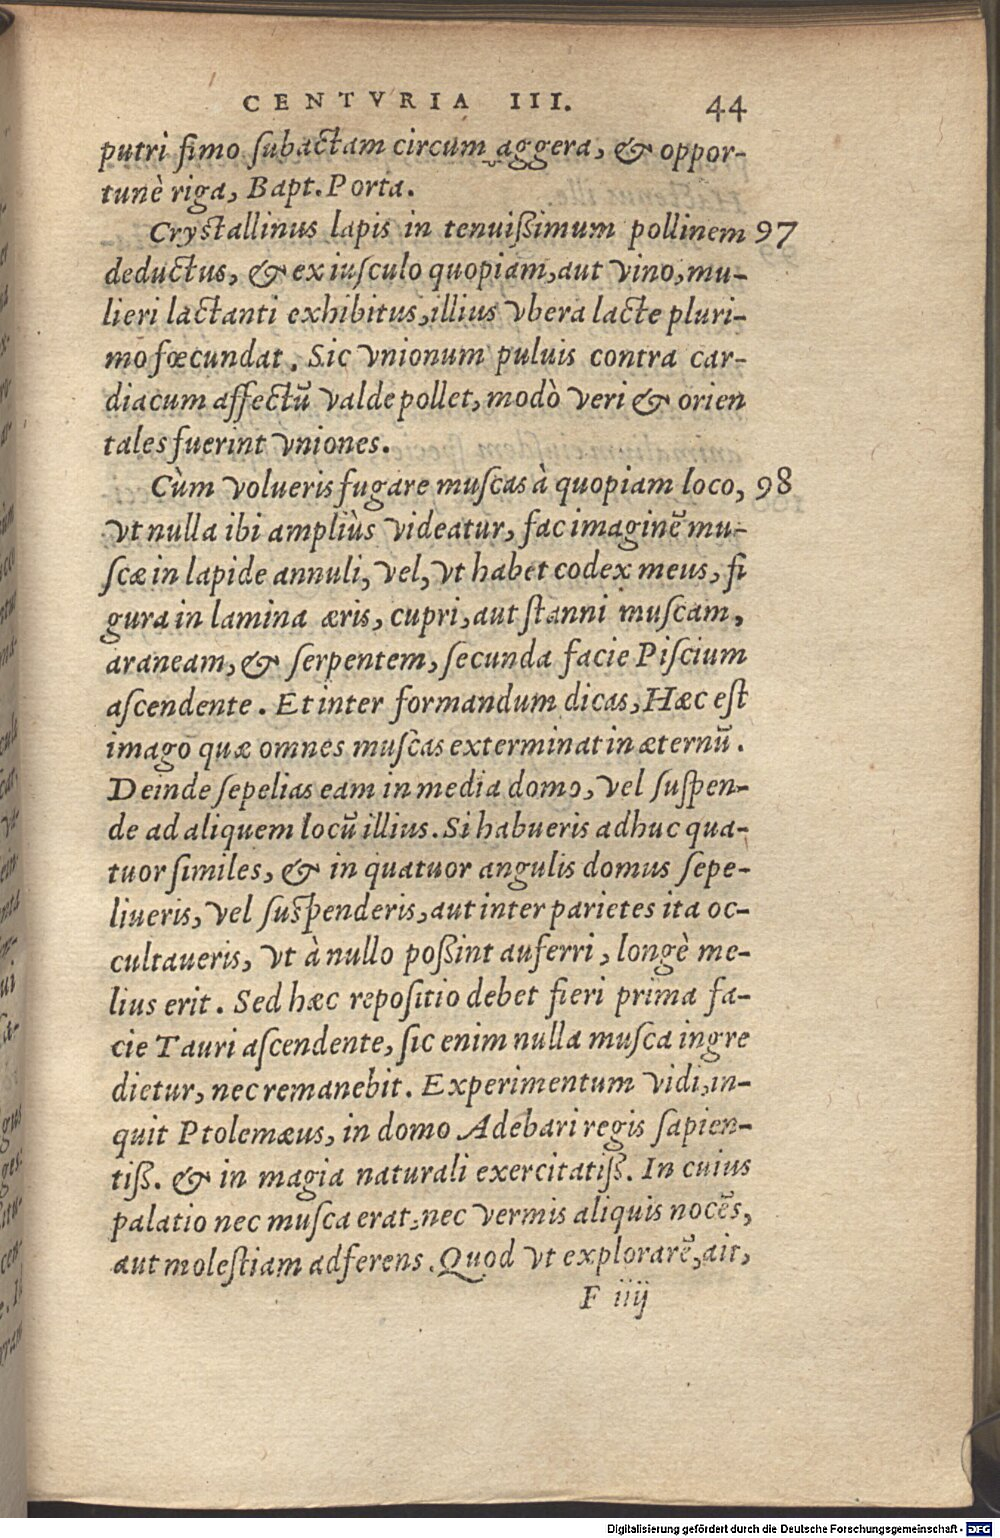 CENTVRIA III. 44
putri fimo ſubactam circum aggera, & oppor-
tunè riga, Bapt. Porta.
Cryſtallinus lapis in tenuiſſimum pollinem 97
deductus, & ex iuſculo quopiam, aut vino, mu-
lieri lactanti exhibitus, illius vbera lacte pluri-
mo fœcundat. Sic vnionum puluis contra car-
diacum affectũ valde pollet, modò veri & orien
tales fuerint vniones.
Cùm volueris fugare muſcas à quopiam loco, 98
vt nulla ibi ampliùs videatur, fac imaginẽ mu-
ſcæ in lapide annuli, vel, vt habet codex meus, fi
gura in lamina æris, cupri, aut ſtanni muſcam,
araneam, & ſerpentem, ſecunda facie Piſcium
aſcendente. Et inter formandum dicas, Hæc eſt
imago quæ omnes muſcas exterminat in æternũ.
Deinde ſepelias eam in media domo, vel ſuſpen-
de ad aliquem locũ illius. Si habueris adhuc qua-
tuor ſimiles, & in quatuor angulis domus ſepe-
liueris, vel ſuſpenderis, aut inter parietes ita oc-
cultaueris, vt à nullo poſſint auferri, longè me-
lius erit. Sed hæc repoſitio debet fieri prima fa-
cie Tauri aſcendente, ſic enim nulla muſca ingre
dietur, nec remanebit. Experimentum vidi, in-
quit Ptolemæus, in domo Adebari regis ſapien-
tiſſ. & in magia naturali exercitatiſſ. In cuius
palatio nec muſca erat, nec vermis aliquis nocẽs,
aut moleſtiam adferens. Quod vt explorarẽ, ait,
F iiij
Digitalisierung gefördert durch die Deutsche Forschungsgemeinschaft - DFG